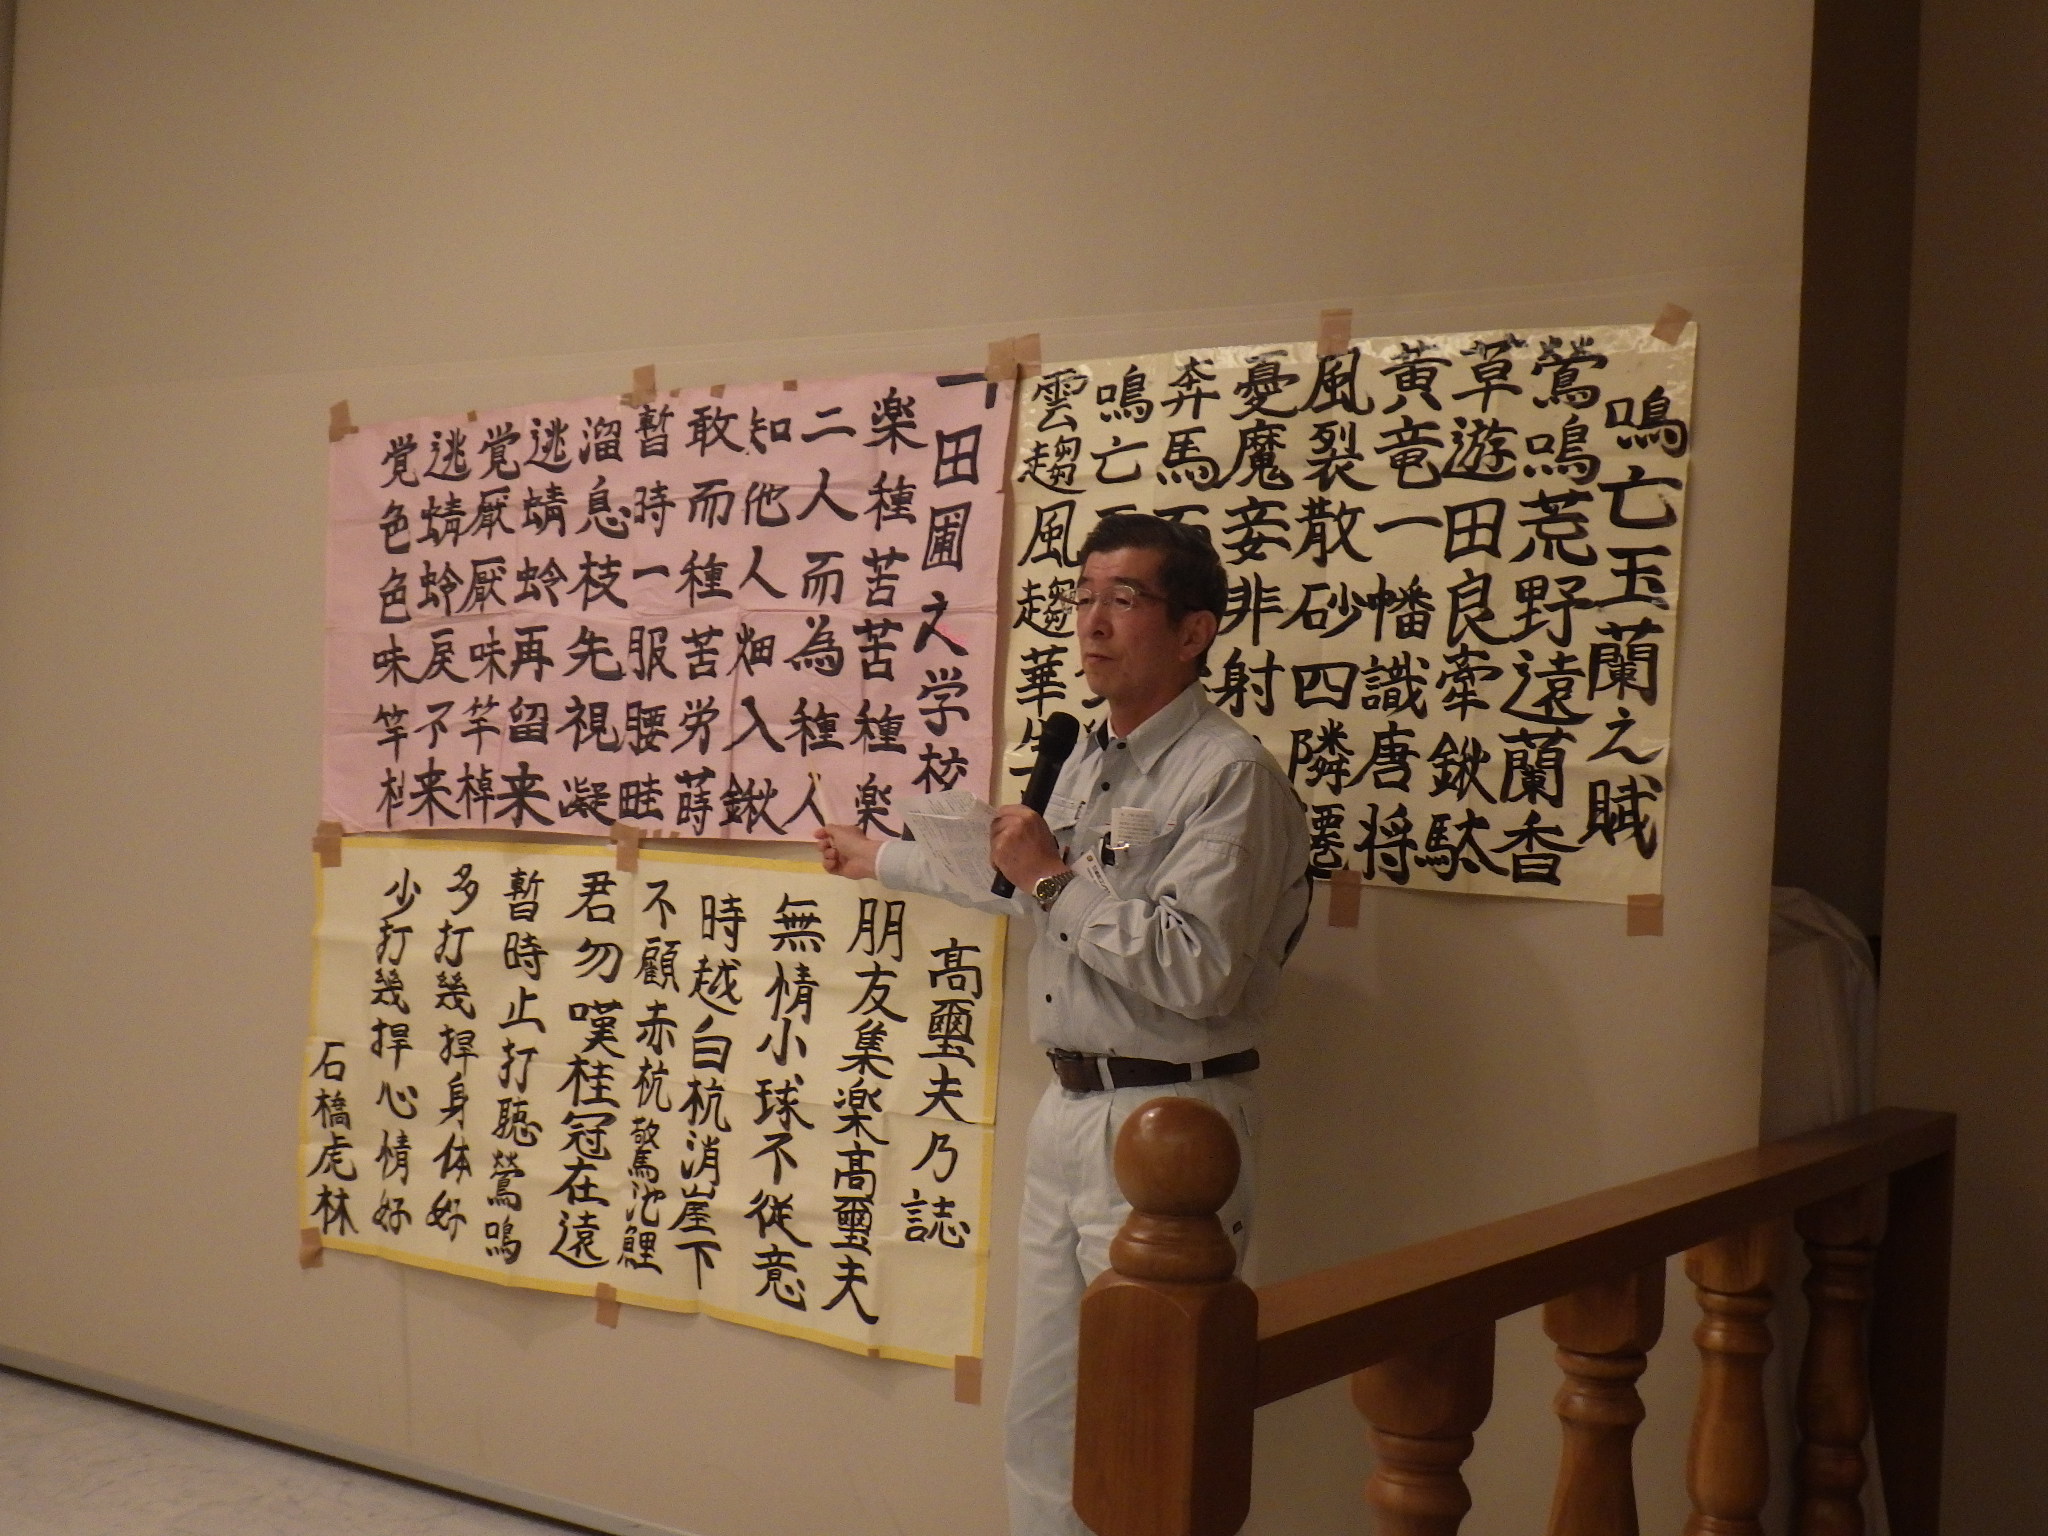 鳴亡玉蘭之賦
鶯鳴荒野遠蘭香
草遊田良牽鍬駄
黄竜一幡識唐将
風裂散砂四隣遷
憂魔妾非射
奔馬
鳴亡
雲趨風趨華生
田圃之学校
楽種苦苦種楽
二人而為種人
知他人畑入鍬
敢而種苦労蒔
暫時一服腰畦
溜息枝先視凝
逃蜻蛉再留来
覚厭厭味竿棹
逃蜻蛉戻不来
覚色色味竿棹
高璽夫乃誌
朋友集楽高璽夫
無情小球不従意
時越白杭消崖下
不顧赤杭驚池鯉
君勿嘆桂冠在遠
暫時止打聴鶯鳴
多打幾捍身体好
少打幾捍心情好
石橋虎林